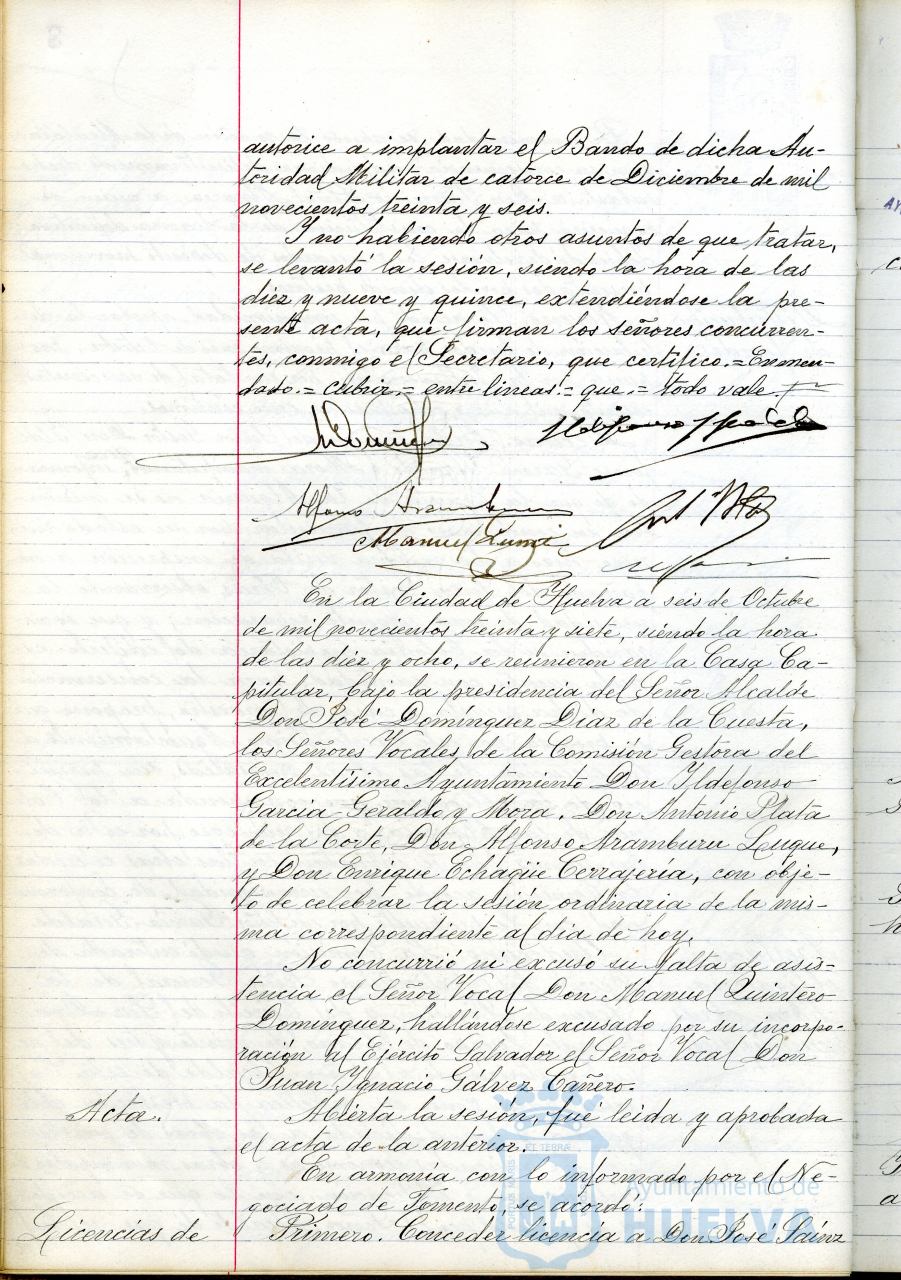 autorice a implantar el Bando de dicha Au-
toridad Militar de catorce de Diciembre de mil
novecientos treinta y seis.
Y no habiendo otros asuntos de que tratar,
se levantó la sesión, siendo la hora de las
diez y nueve y quince, extendiéndose la pre-
sente acta, que firman los señores concurren-
tes, conmigo el Secretario, que certifico.=Enmen-
dado.= cubrir.= entre lineas!= que.= todo vale.
Alfonso Aramburu
Manuel Quintero
En la Ciudad de Huelva a seis de Octubre
de mil novecientos treinta y siete, siendo la hora
de las diez y ocho, se reunieron en la Casa Ca-
pitular, bajo la presidencia del Señor Alcalde
Don José Domínguez Diaz de la Cuesta,
los Señores Vocales de la Comisión Gestora del
Excelentísimo Ayuntamiento Don Ildefonso
Garcia-Geraldo y Mora, Don Antonio Plata
de la Corte, Don Alfonso Aramburu Luque,
y Don Enrique Echagüe Cerrajeria, con obje-
to de celebrar la sesión ordinaria de la mis-
ma correspondiente al dia de hoy.
No concurrió ni excusó su falta de asis-
tencia el Señor Vocal Don Manuel Quintero
Domínguez, hallándose excusado por su incorpo-
ración al Ejército Salvador el Señor Vocal Don
Juan Ygnacio Gálvez Cañero.
Acta. Abierta la sesión, fué leida y aprobada
el acta de la anterior.
En armonía con lo informado por el Ne-
gociado de Fomento, se acordó:
Licencias de Primero. Conceder licencia a Don José Sáinz
Ayuntamiento de
HUELVA